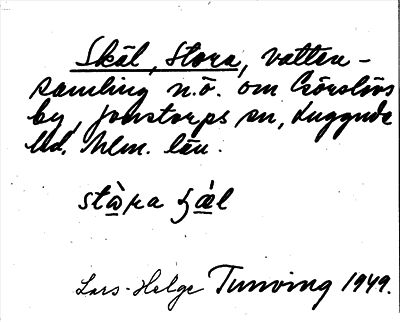 Skäl, Stora, vatten-
samling n.ö. om Görslövs
by, Jonstorps sn, Luggude
hd, Mlm. län.
stɷ̀ra ʂæl
Lars-Helge Tunving 1949.